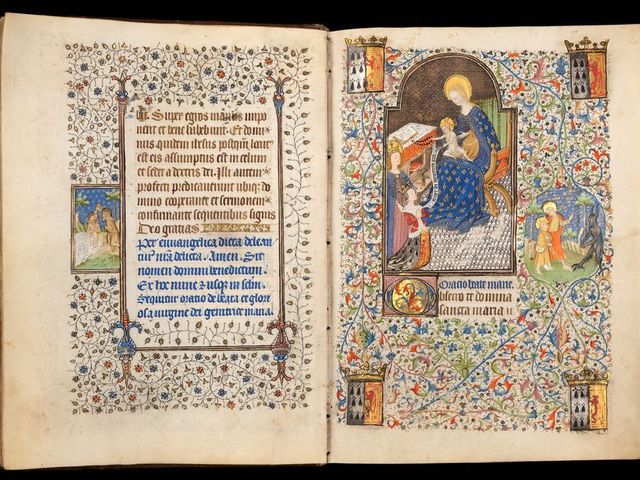 Super egros manus impo
nent et bene habebunt. Et domi
nus quidem ihesus postquam locut
est eis assumptus est in celum
et sedet a dextris dei. Illi autem
profecti predicauerunt ubiqz do
mino cooperante et sermonem
confirmante sequentibus signis
Deo gratias
Per euuangelica dicta delean
tur nra delicta. Amen. Sit
nomen domini benedictum.
Ex hoc nunc et usqz in seclm
Sequitur oratio de beata et glori
osa uirgine dei genitrice maria.
Oratio beate marie.
Obsecro te domina
sancta maria